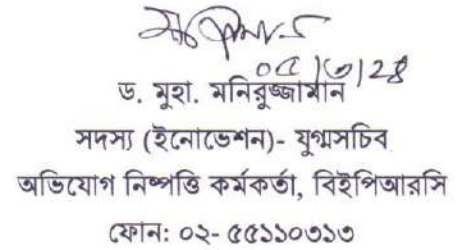 ০৫/৩/২৪
ড. মুহা. মনিরুজ্জামান
সদস্য (ইনোভেশন)- যুগ্মসচিব
অভিযোগ নিষ্পত্তি কর্মকর্তা, বিইপিআরসি
ফোন: ০২- ৫৫১১০৩১৩